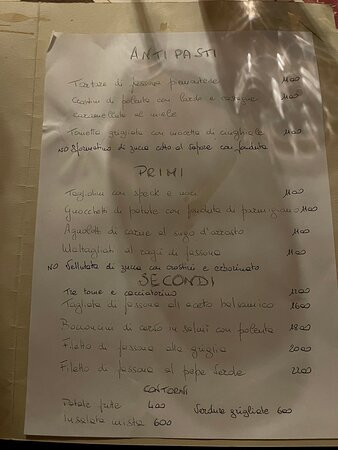 ANTIPASTI
Tartare di fassona piemontese 11.00
Crostini di polenta con lardo e castagne 11.00
caramellate al miele
Tomino grigliato con mocetta di cinghiale 11.00
NO Sformatino di zucca cotto al vapore con fonduta
PRIMI
Tagliolini con speck e noci 11.00
Gnocchetti di patate con fonduta di parmigiano 11.00
Agnolotti di carne al sugo d'arrosto 11.00
Maltagliati al ragù di fassona 11.00
NO Vellutata di zucca con crostini e erborinato
SECONDI
Tre tome e
Tagliata di fassona all aceto balsamico 16.00
Bocconcini di in salmì con polenta 18.00
Filetto di fassona alla griglia 20.00
Filetto di fassona al pepe verde 22.00
CONTORNI
Patate fritte 4.00 Verdure grigliate 6.00
Insalata mista 6.00